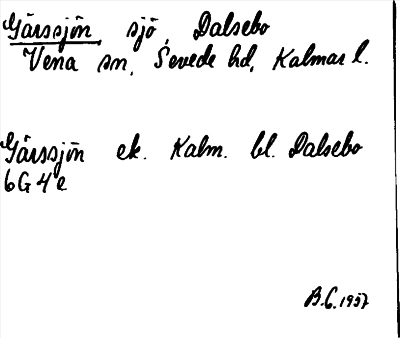 Gårssjön sjö, Dalsebo
Vena sn, Sevede hd, Kalmar l.
Gårssjön ek. Kalm. bl. Dalsebo
6G4e
B.C. 1957